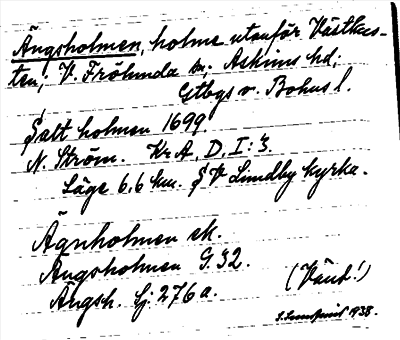 Ängsholmen, holme utanför Västkus-
ten; V. Frölunda sn; Askims hd;
Gtbgs o. Bohus l.
§alt holmen 1699
N. Ström. Kr A, D, I: 3.
Läge 6,6 km. § V Lundby kyrka.
Ägnholmen ek.
Ängsholmen G. 32.
Ängsh. Gj: 276 a.
(Vänd!)
1938.